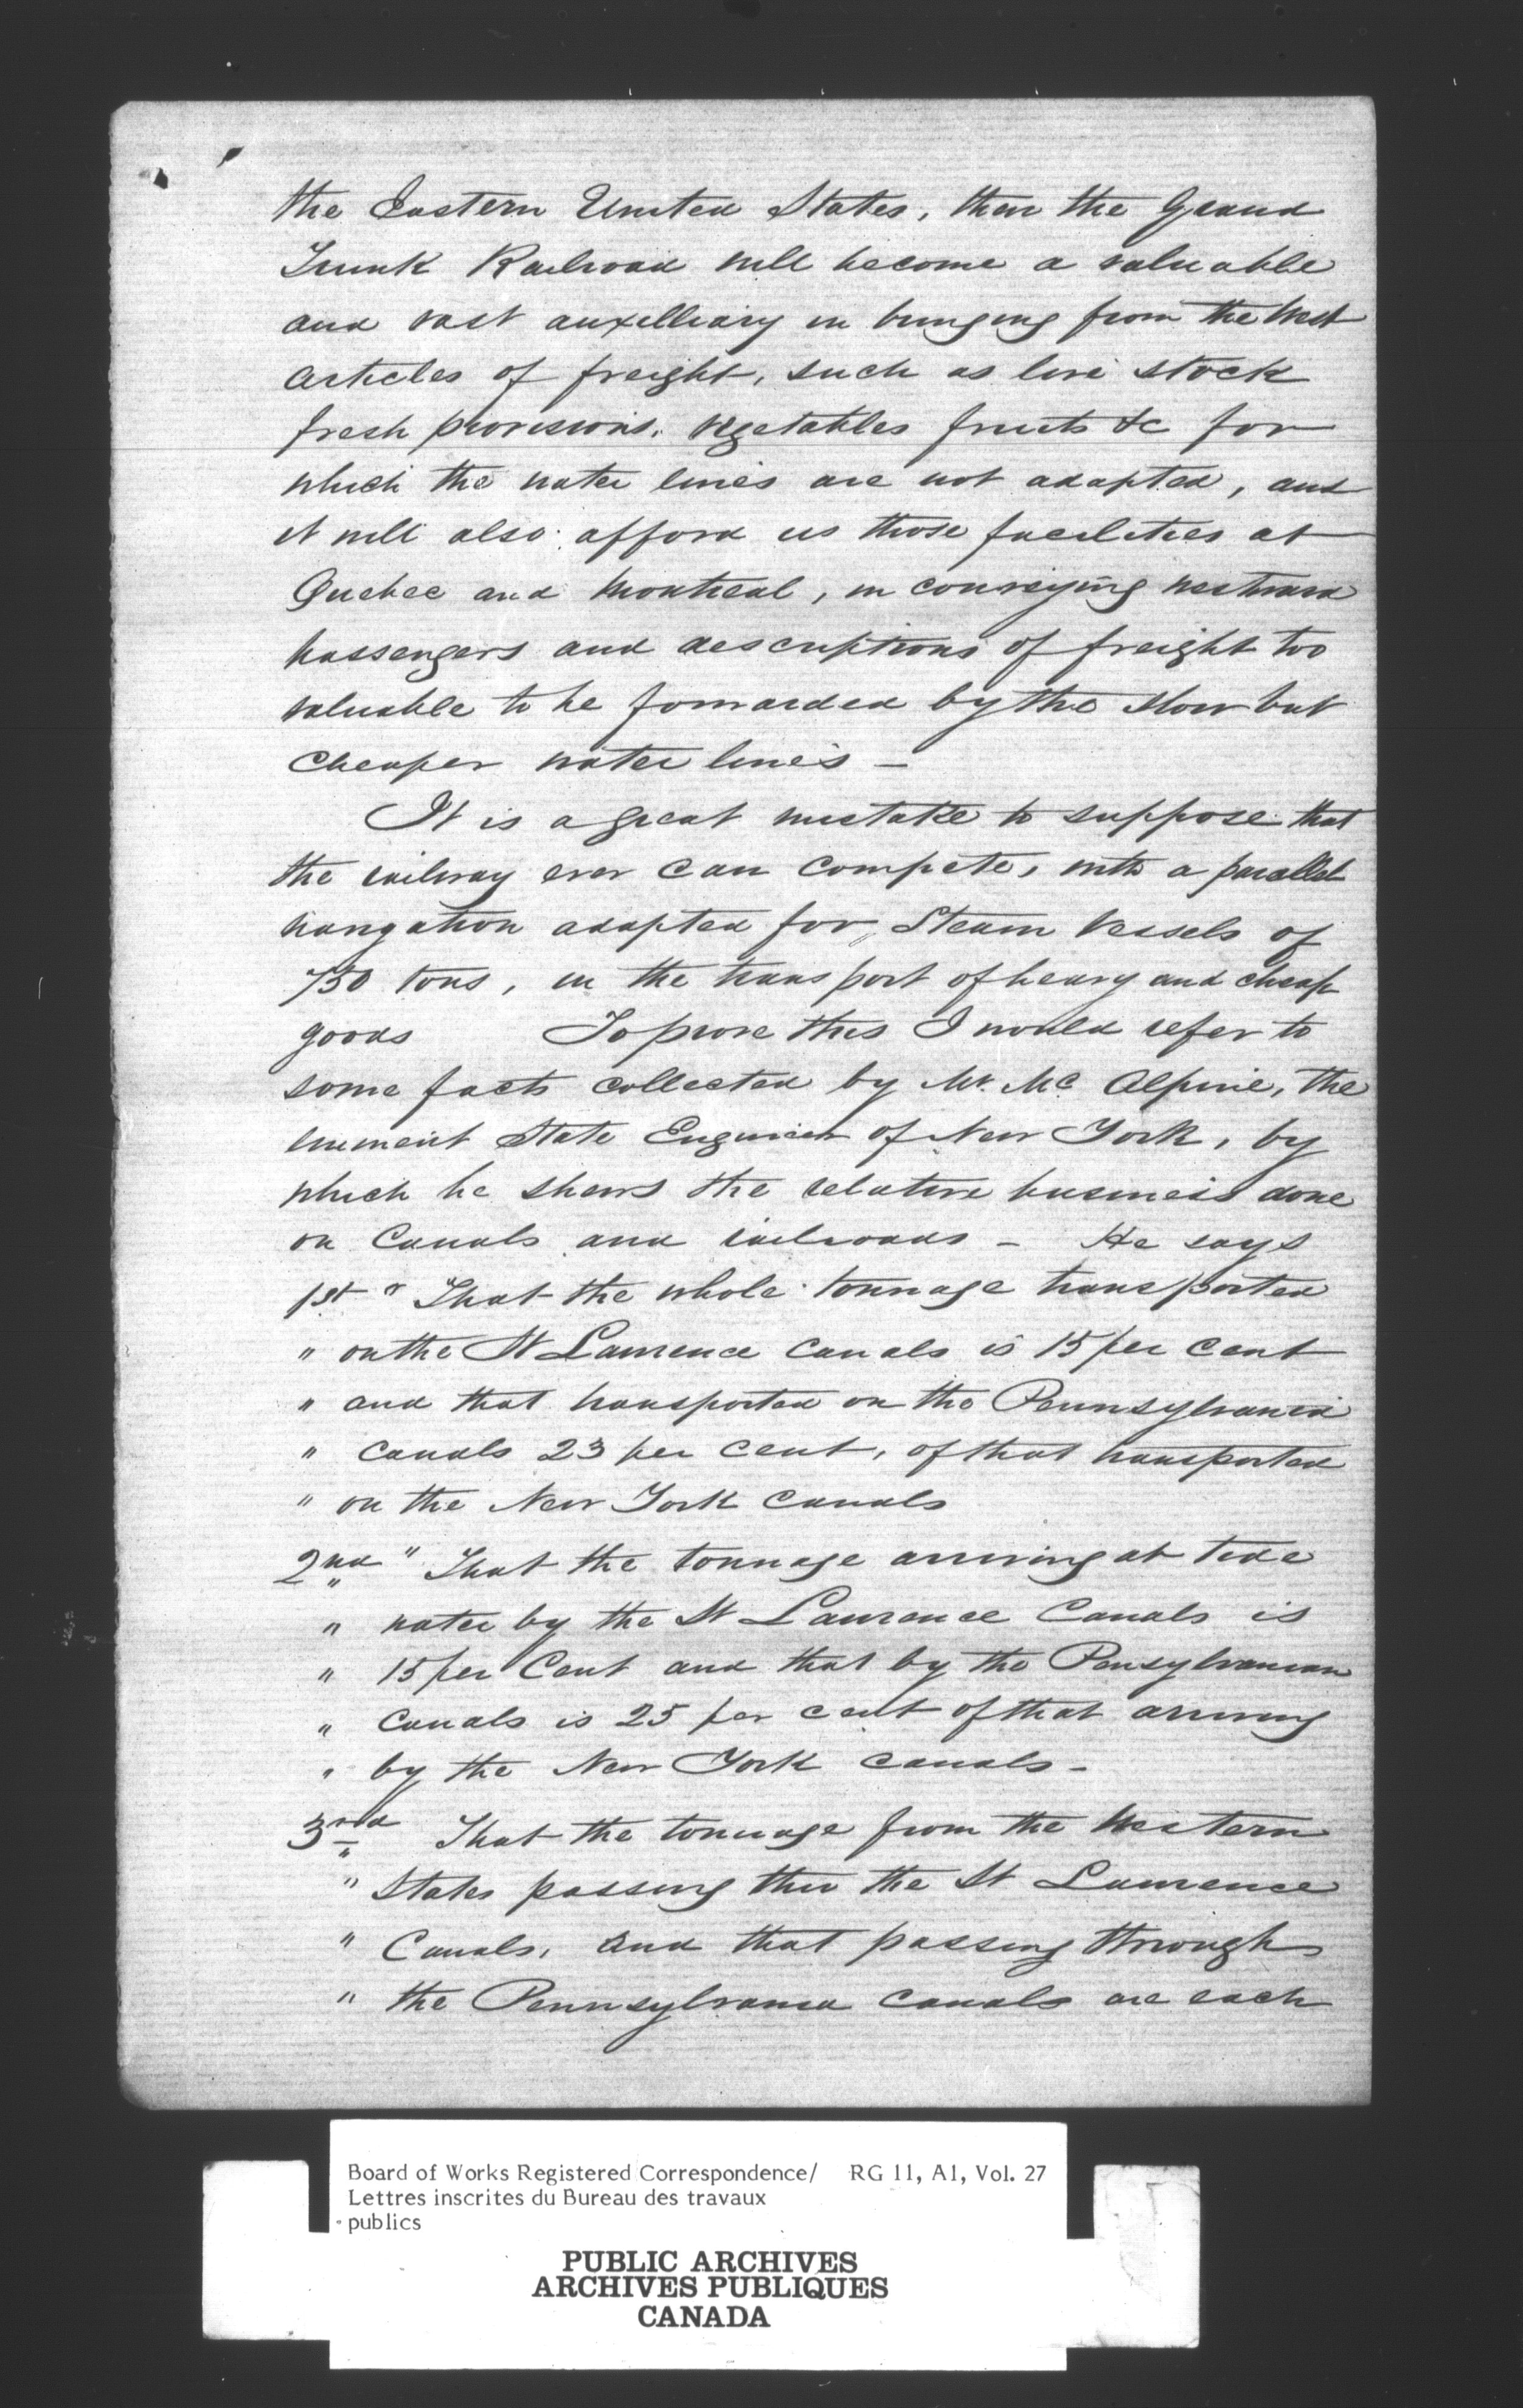 the Eastern United States, then the Grand
Trunk Railroad will become a valuable
and vast auxilliary in bringing from the West
articles of freight, such as live stock
fresh provisions, vegetables fruits &c for
which the water lines are not adapted, and
it will also afford us those facilities at
Quebec and Montreal, in conveying westward
passengers and descriptions of freight too
valuable to be forwarded by the slow but
cheaper water lines –
It is a great mistake to suppose that
the railway ever can compete, with a parallel
navigation adapted for Steam Vessels of
750 tons, in the transport of heavy and cheap
goods To prove this I would refer to
some facts collected by Mr. McAlpine, the
eminent State Engineer of New York, by
which he shews the relative business done
on Canals and railroads – He says
1st " That the whole tonnage transported
" on the St Lawrence Canals is 15 per cent
" and that transported on the Pennsylvania
" Canals 23 per cent, of that transported
" on the New York Canals
2nd " That the tonnage arriving at tide
" water by the St Lawrence Canals is
" 15 per Cent and that by the Pensylvanian
" Canals is 25 per cent of that arriving
" by the New York canals –
3rd " That the tonnage from the Western
" States passing thro the St Lawrence
" Canals, and that passing through
" the Pennsylvania canals are each
Board of Works Registered Correspondence/ RG 11, A1, Vol. 27
Lettres inscrites du Bureau des travaux
publics
PUBLIC ARCHIVES
ARCHIVES PUBLIQUES
CANADA